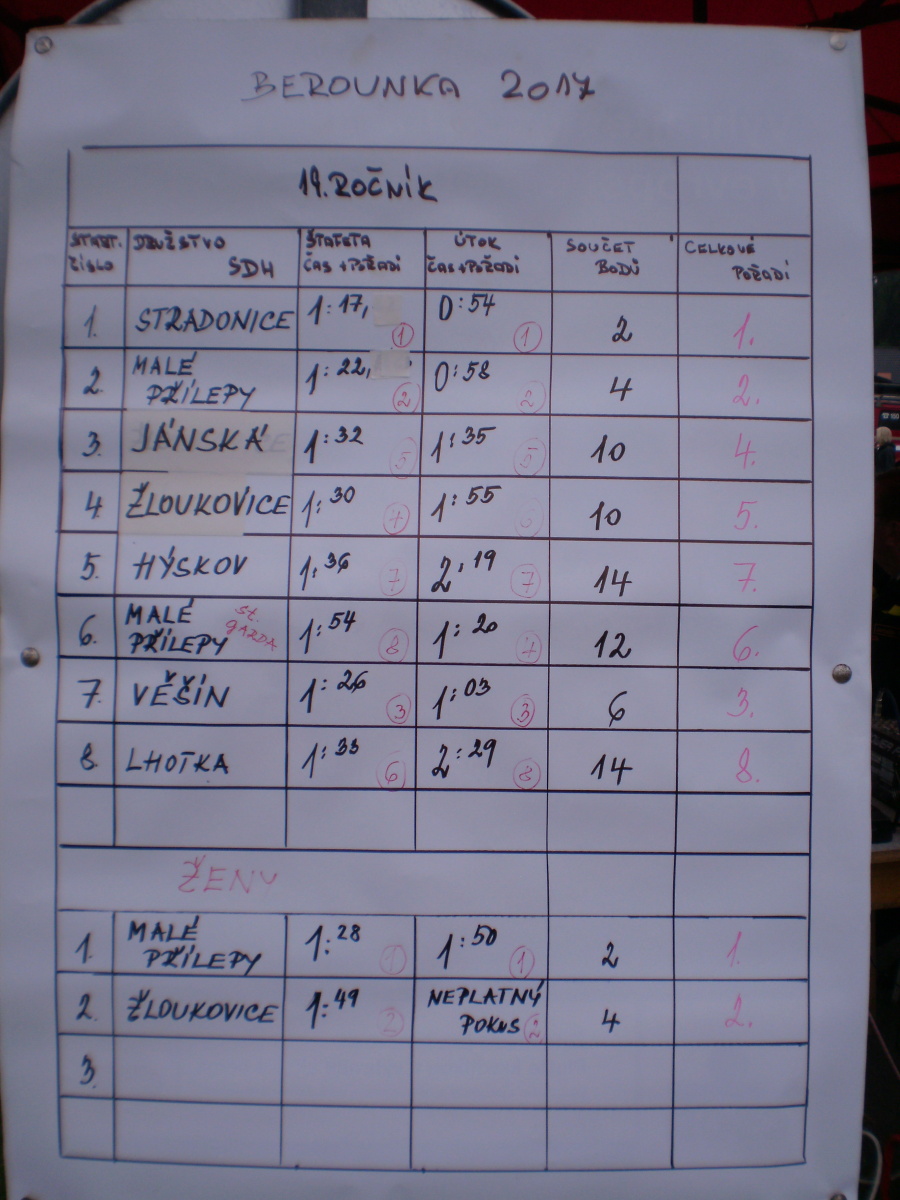 BEROUNKA 2017
19. ROČNÍK
START. ČÍSLO DRUŽSTVO SDH ŠTAFETA ČAS + POŘADÍ ÚTOK ČAS + POŘADÍ SOUČET BODŮ CELKOVÉ POŘADÍ
1. STRADONICE 1:17, 1 0:54 1 2 1.
2. MALÉ PŘÍLEPY 1:22, 2 0:58 2 4 2.
3. JÁNSKÁ 1:32 5 1:35 5 10 4.
4 ŽLOUKOVICE 1:30 4 1:55 6 10 5.
5. HÝSKOV 1:36 7 2:19 7 14 7.
6. MALÉ PŘÍLEPY st. GARDA 1:54 8 1:20 4 12 6.
7. VĚŠÍN 1:26 3 1:03 3 6 3.
8. LHOTKA 1:33 6 2:29 8 14 8.
ŽENY
1. MALÉ PŘÍLEPY 1:28 1 1:50 1 2 1.
2. ŽLOUKOVICE 1:49 2 NEPLATNÝ POKUS 2 4 2.
3.